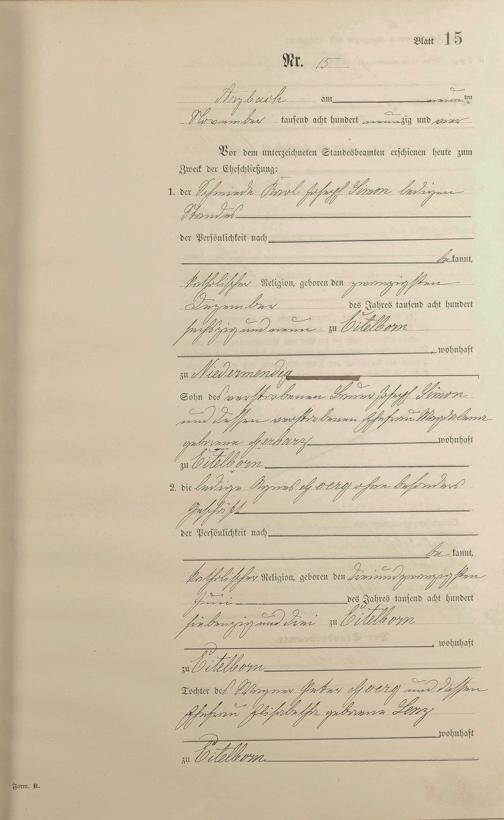 Blatt 15
Nr. 15
Arzbach am neunten
November tausend acht hundert neunzig und vier
Vor dem unterzeichneten Standesbeamten erschienen heute zum
Zweck der Eheschließung:
1. der Schmiede Karl Joseph Simon ledigen
Standes
der Persönlichkeit nach
bekannt,
katholischer Religion, geboren den zwanzigsten
Dezember des Jahres tausend acht hundert
sechszig und neun zu Eitelborn
, wohnhaft
zu Niedermendig
Sohn des verstorbenen Joseph Simon
und dessen verstorbenen Ehefrau Magdalena
geborene wohnhaft
zu Eitelborn
2. die ledige Agnes ohne besonders
Geschäft
der Persönlichkeit nach
bekannt,
katholischer Religion, geboren den dreiundzwanzigsten
Juni des Jahres tausend acht hundert
siebenzig und drei zu Eitelborn
, wohnhaft
zu Eitelborn
Tochter des Wagner Peter und dessen
Ehefrau Elisabetha geborene Lenz
wohnhaft
zu Eitelborn
Form. B.